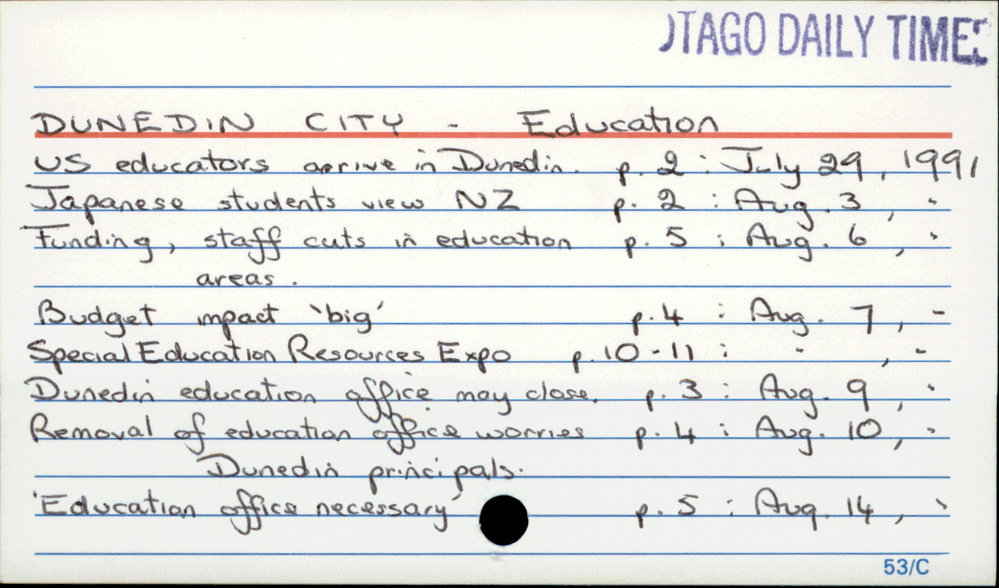 OTAGO DAILY TIMES
DUNEDIN CITY - Education
US educators arrive in Dunedin. p. 2 : July 29, 1991
Japanese students view NZ p. 2 : Aug. 3, "
Funding, staff cuts in education p. 5 : Aug. 6, "
areas.
Budget impact 'big' p. 4 : Aug. 7, "
Special Education Resources Expo p. 10-11 : " , "
Dunedin education office may close. p. 3 : Aug. 9, "
Removal of education office worries p. 4 : Aug. 10, "
Dunedin principals.
'Education office necessary' p. 5 : Aug. 14, "
53/C